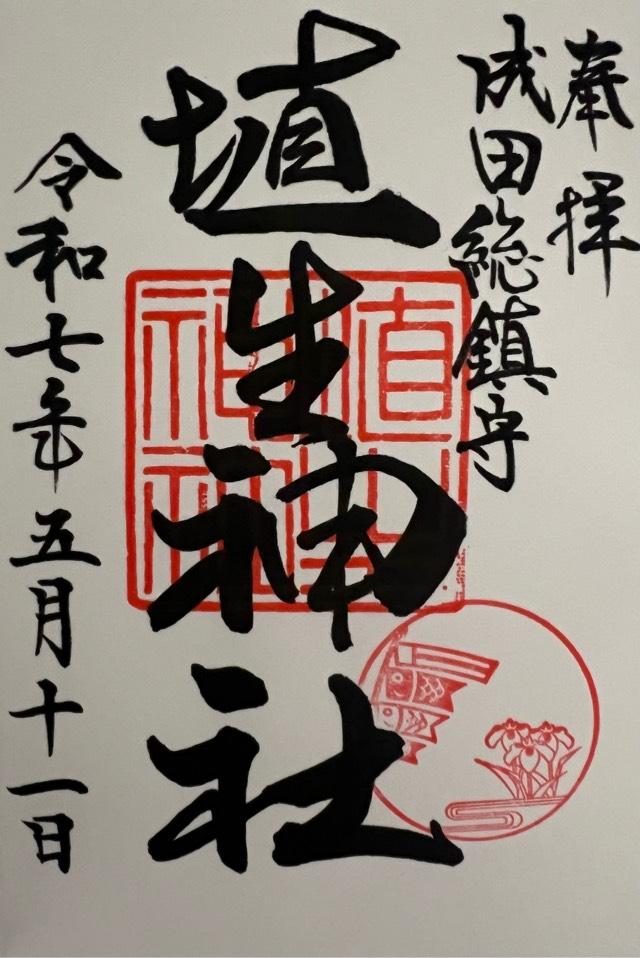 奉拝
成田総鎮守
埴生神社
令和七年五月十一日